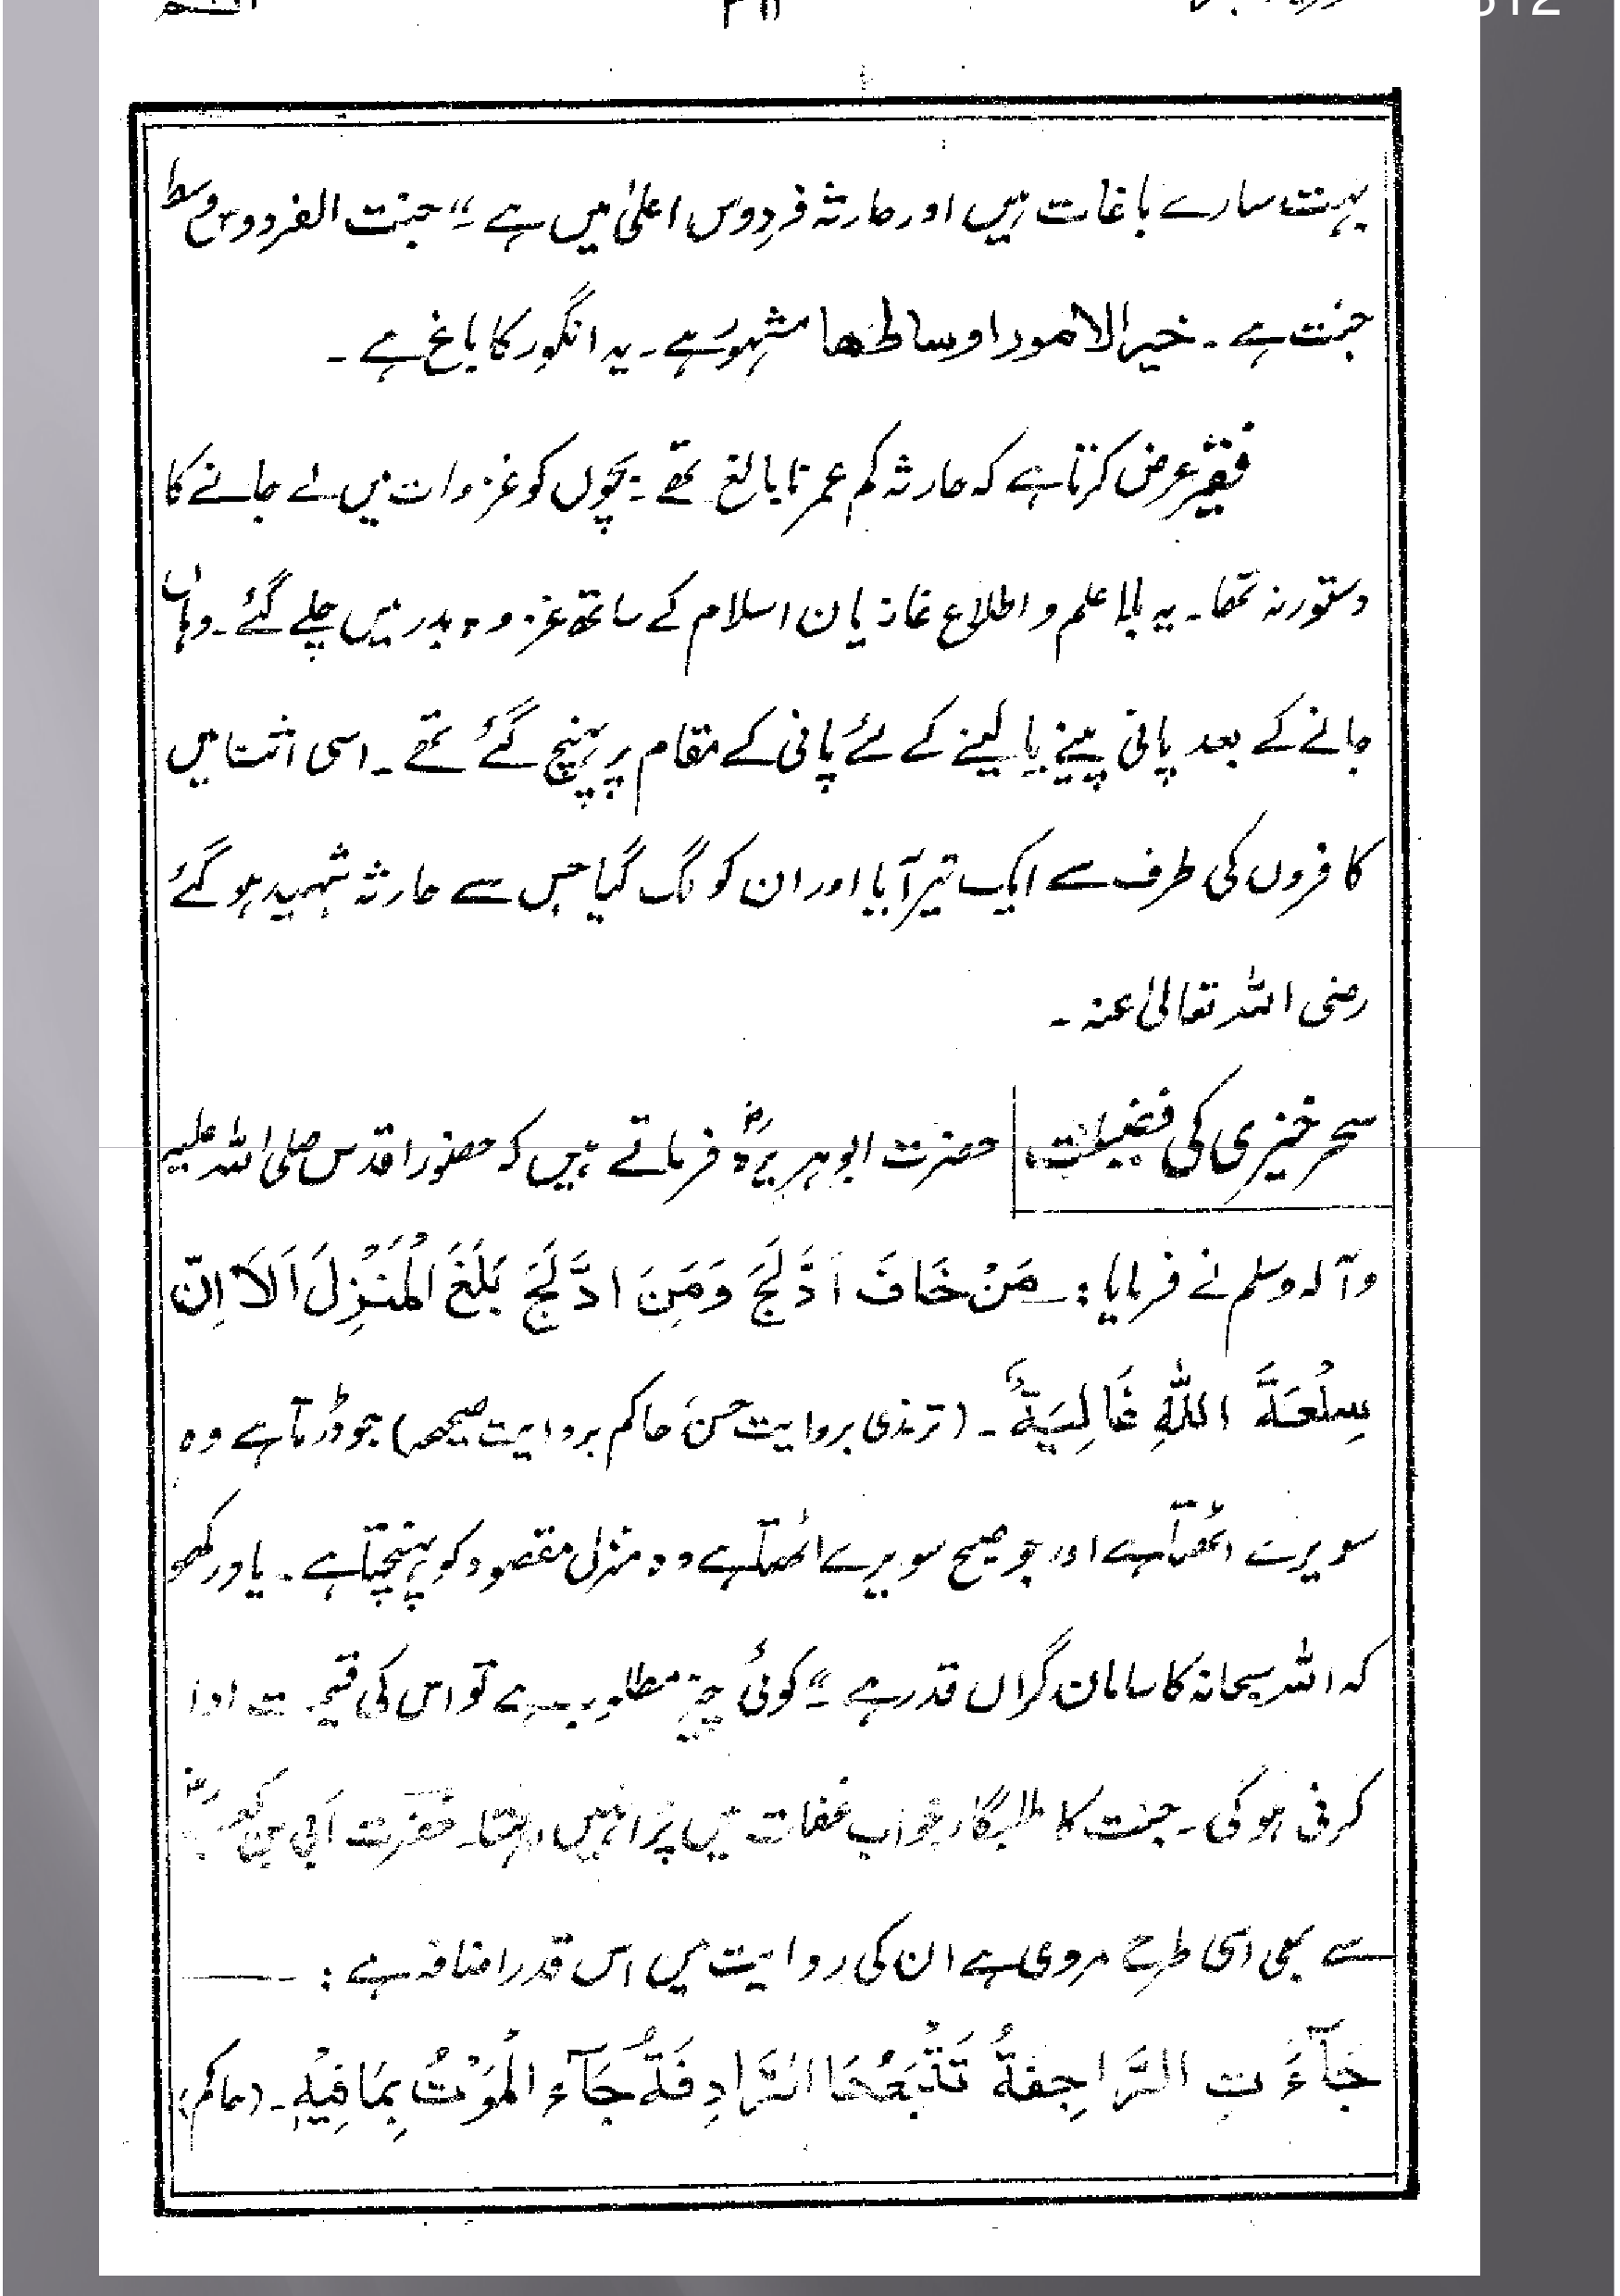 بہت سارے باغات ہیں اور حارثہ فردوس اعلیٰ میں ہے ـ" جنت الفردوس وسط
جنت ہے ـ خیر الامور اوساطھا مشہور ہے ـ یہ انگور کا باغ ہے ـ
فقیر عرض کرتا ہے کہ حارثہ کم عمر نابالغ تھے ـ بچوں کو غزوات میں لے جانے کا
دستور نہ تھا ـ یہ بلا علم و اطلاع غازیان اسلام کے ساتھ غزوہ بدر میں چلے گئے ـ وہاں
جانے کے بعد پانی پینے یا لینے کے لئے پانی کے مقام پر پہنچ گئے تھے ـ اسی اثنا میں
کافروں کی طرف سے ایک تیر آیا اور ان کو لگ گیا جس سے حارثہ شہید ہو گئے
رضی اللہ تعالیٰ عنہ ـ
سحر خیزی کی فضیلت حضرت ابوہریرہؓ فرماتے ہیں کہ حضور اقدس صلی اللہ علیہ
وآلہ وسلم نے فرمایا : مَنْ خَافَ اَدَّلَجَ وَمَنَ ادَّلَجَ بَلَغَ الْمُنَزِلَ اَلَا اِنّ
سِلْعَةَ اللّٰهِ غَالِيَةٌ ـ (ترمذی بروایت حسن حاکم بروایت صحیحہ) جو ڈرتا ہے وہ
سویرے اٹھتا ہے اور جو صبح سویرے اٹھتا ہے وہ منزل مقصود کو پہنچتا ہے ـ یاد رکھو
کہ اللہ سبحانہ کا سامان گراں قدر ہے ـ" کوئی چیز مطلوب ہے تو اس کی قیمت ادا
کرنی ہوگی ـ جنت کا طلبگار خواب غفلت میں پڑا نہیں رہتا ـ حضرت اُبی بن کعبؓ
سے بھی اسی طرح مروی ہے ان کی روایت میں اس قدر اضافہ ہے : ـ
جَآءَتِ الرَّاجِفَةُ تَتْبَعُهَا الرَّادِفَةُ جَآءَ الْمَوْتُ بِمَا فِيْهِ ـ (حاکم)